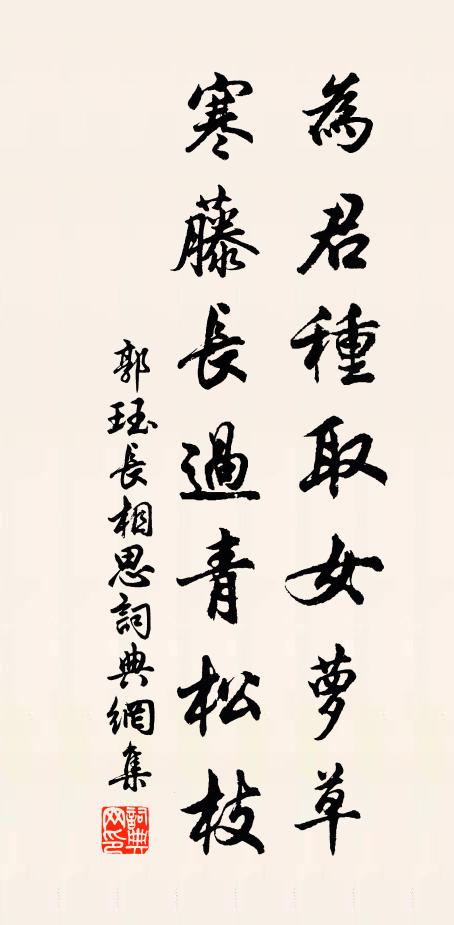 為君種取女萝草
寒藤長過青松枝
郭珏長相思詞典網集
詞典网印